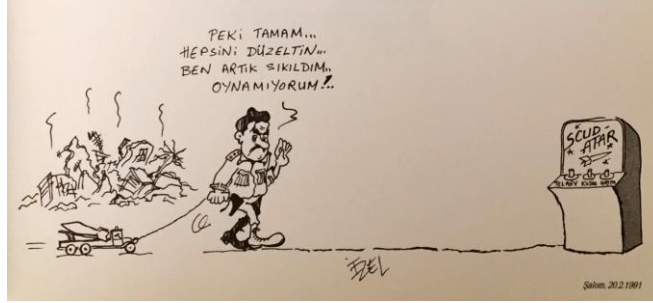 PEKİ TAMAM...
HEPSİNİ DÜZELTİN...
BEN ARTIK SIKILDIM..
OYNAMIYORUM!..
SCUD
ATAR
TELAVİV KUDÜS HAYFA
İZEL
Şalom, 20.2.1991